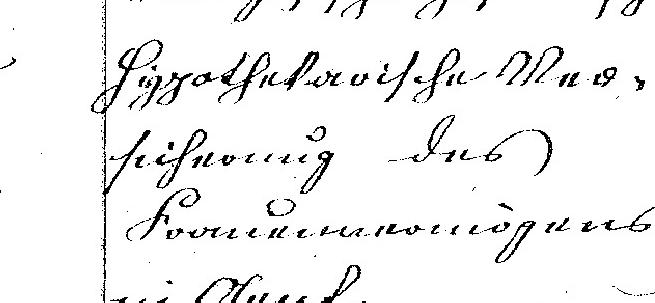 Hypothekarische Ver-
sicherung des
Frauenvermögens
in